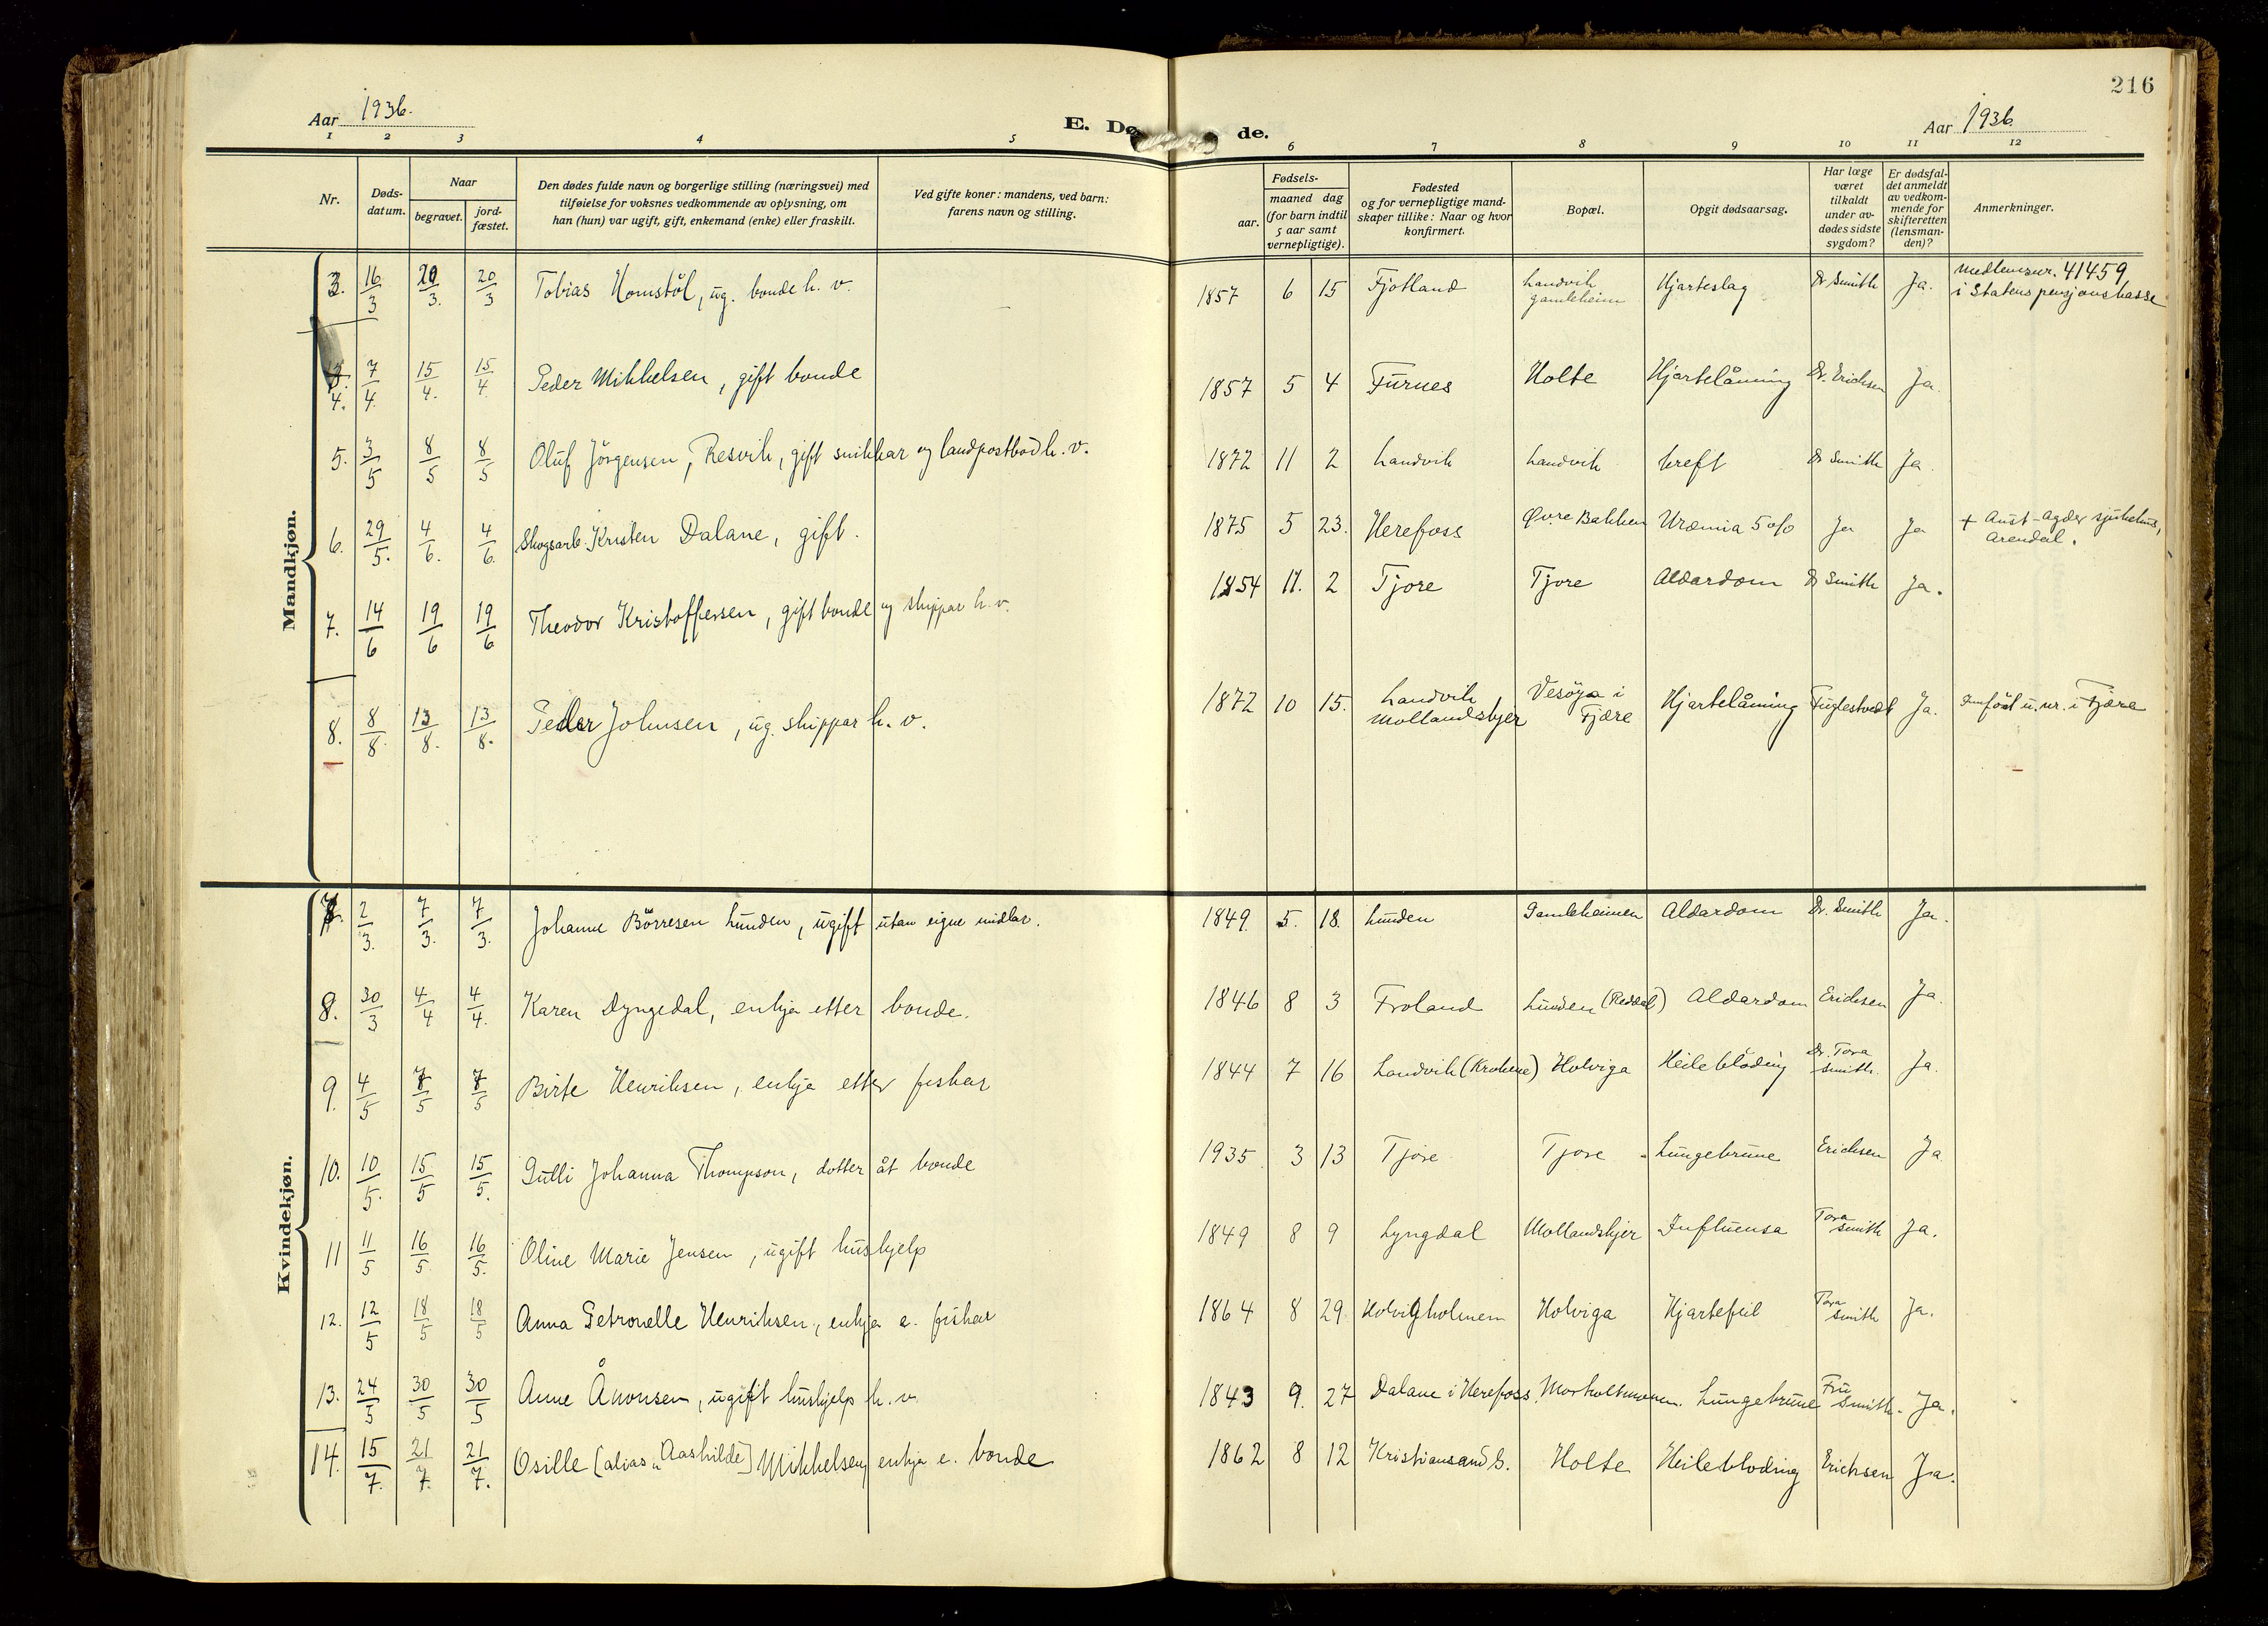 216
Aar 1936.
E. Dø de.
Aar 1936
1 2 3 4 5 6 7 8 9 10 11 12
Nr.
Døds-
datum.
Naar
begravet.
jord-
fæstet.
Den dødes fulde navn og borgerlige stilling (næringsvei) med
tilføielse for voksnes vedkommende av oplysning, om
han (hun) var ugift, gift, enkemand (enke) eller fraskilt.
Ved gifte koner: mandens, ved barn:
farens navn og stilling.
Fødsels-
aar.
maaned dag
(for barn indtil
5 aar samt
vernepligtige).
Fødested
og for vernepligtige mand-
skaper tillike: Naar og hvor
konfirmert.
Bopæl.
Opgit dødsaarsag.
Har læge
været
tilkaldt
under av-
dødes sidste
sygdom?
Er dødsfal-
det anmeldt
av vedkom-
mende for
skifteretten
(lensman-
den)?
Anmerkninger.
Mandkjøn.
3. 16/3 20/3. 20/3 Tobias Homstöl, ug. bonde h. v. 1857 6 15 Fjotland Landvik gamleheim Hjarteslag Dr Smith Ja. Medlemsnr. 41459 i Statens pensjonskasse
4. 7/4. 15/4. 15/4. Peder Mikkelsen, gift bonde 1857 5 4 Furnes Holte Hjartelåming Dr. Erichsen Ja.
5. 3/5 8/5 8/5 Oluf Jörgensen, Resvik, gift snikkar og landpostbod h. v. 1872 11 2 Landvik Landvik kreft Dr Smith Ja.
6. 29/5. 4/6. 4/6. Skogsarb. Kristen Dalane, gift. 1875 5 23. Herefoss Øvre Bakken Urämia 5 o/o Ja Ja + Aust-Agder sjukehus, Arendal.
7. 14/6 19/6 19/6 Theodor Kristoffersen, gift bonde og skippar h. v. 1854 11. 2 Tjore Tjore Aldardom Dr Smith Ja.
8. 8/8. 13/8. 13/8. Peder Johnsen, ug. skippar h. v. 1872 10 15. Landvik Mollandskjer Vesöya i Fjære Hjartelåming Fuglestvedt Ja. Innfört u. nr. i Fjære
Kvindekjøn.
7. 2/3. 7/3. 7/3. Johanne Börresen Lunden, ugift utan eigne midlar. 1849. 5. 18. Lunden Gamleheimen Aldardom Dr. Smith Ja.
8. 30/3 4/4 4/4. Karen Dyngedal, enkja etter bonde. 1846 8 3 Froland Lunden (Reddal) Aldardom Erichsen Ja.
9. 4/5 8/5 8/5 Birte Henriksen, enkja etter fiskar 1844 7 16 Landvik (Krokene) Holviga Heileblöding Dr. Tora Smith. Ja.
10. 10/5. 15/5 15/5. Gulli Johanna Thompson, dotter åt bonde 1935 3 13 Tjore Tjore Lungebrune Erichsen Ja
11 11/5 16/5. 16/5. Oline Marie Jensen, ugift hushjelp 1849 8 9 Lyngdal Mollandskjer Influensa Tora Smith Ja.
12. 12/5 18/5 18/5 Anna Petronelle Henriksen, enkja e. fiskar 1864 8 29. Holvigholmen Holviga Hjartefeil Tora Smith Ja.
13. 24/5 30/5 30/5 Anne Ånonsen, ugift hushjelp h. v. 1843 9. 27 Dalane i Herefoss. Morholtmoen. Lungebrune Fru Smith. Ja.
14. 15/7. 21/7. 21/7. Osille [alias „Aashilde] Mikkelsen, enkja e. bonde 1862 8 12 Kristiansand S. Holte Heileblöding Erichsen Ja.